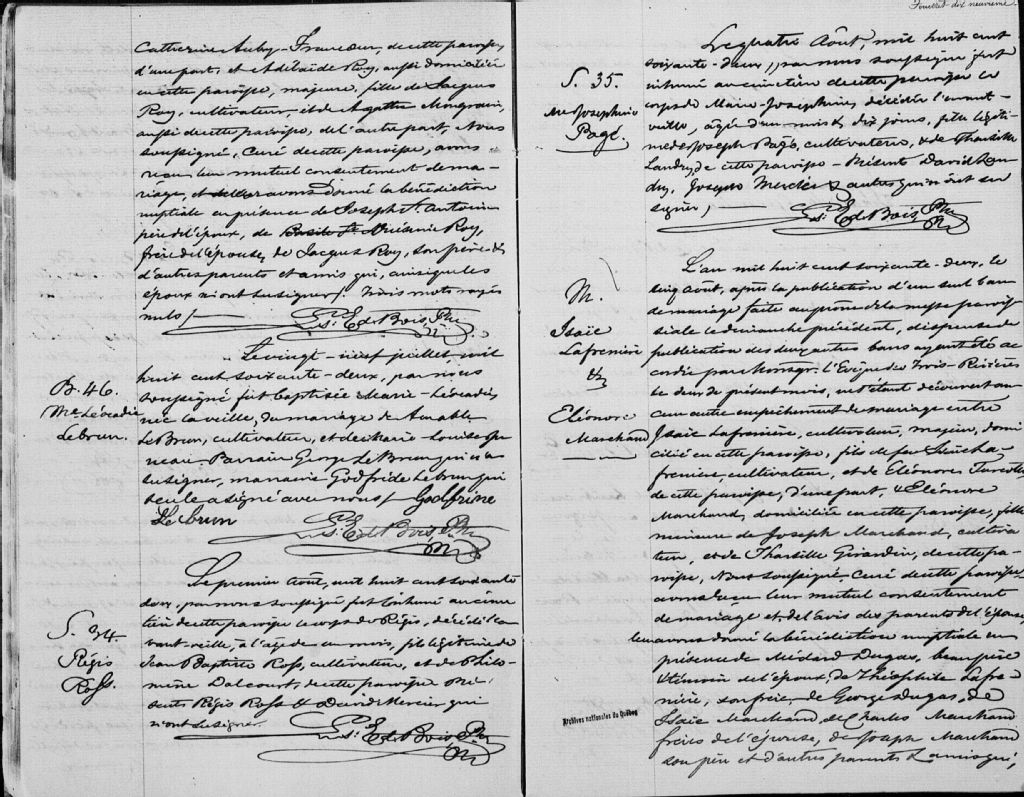 Catherine Auby-Francoeur, de cette paroisse,
d'une part, et Adélaïde Roy, aussi domiciliée
en cette paroisse, majeure, fille de Jacques
Roy, cultivateur, et de Agathe Mongrain,
aussi de cette paroisse, de l'autre part, Nous
soussigné, Curé de cette paroisse, avons
reçu leur mutuel consentement de ma-
riage, et leur avons donné la bénédiction
nuptiale en présence de Joseph St. Antoine
père de l'époux, de Roy,
frère de l'épouse, de Jacques Roy, son père &
d'autres parents et amis qui, ainsi que les
époux n'ont su signer. Trois mots rayés
nuls
L. S. E. de Bois, Ptre
B. 46.
Me. Léocadie
Lebrun.
Le vingt-neuf juillet mil
huit cent soixante-deux, par nous
soussigné fut baptisée Marie-Léocadie,
née la veille, du mariage de Amable
LeBrun, cultivateur, et de Marie-Louise
Parrain George LeBrun qui n'a
su signer, marraine Godfride Lebrun qui
seule a signé avec nous Godfrine
Lebrun
L. S. E. de Bois, Ptre
S. 34.
Régis
Ross.
Le premier Août, mil huit cent soixante
deux, par nous soussigné fut inhumé au cime-
tière de cette paroisse le corps de Régis, décédé l'a-
vant-veille, à l'âge de un mois, fils légitime de
Jean Baptiste Ross, cultivateur, et de Philo-
mène Dalcourt, de cette paroisse. Pré-
sents Régis Ross & David Mercier qui
n'ont su signer
L. S. E. de Bois, Ptre
Feuillet dix neuvième.
S. 35.
Me Josephine
Pagé.
Le quatre Août, mil huit cent
soixante-deux, par nous soussigné fut
inhumé au cimetière de cette paroisse le
corps de Marie-Josephine, décédée l'avant-
veille, âgée d'un mois & dix jours, fille légiti-
me de Joseph Pagé, cultivateur, & de Tharsile
Landry, de cette paroisse - Présents David Lan-
dry, Joseph Mercier & autres qui n'ont su
signer,
L. S. E. de Bois, Ptre
M.
Isaïe
Lafrenière
&
Eléonore
Marchand
L'an mil huit cent soixante-deux, le
cinq Août, après la publication d'un seul ban
de mariage faite au prône de la messe parois-
siale le dimanche précédent, dispense de
publication des deux autres bans ayant été ac-
cordée par Monsgr. l'Evêque des Trois-Rivières
le deux du présent mois, ne s'étant découvert au-
cun autre empêchement de mariage entre
Isaïe Lafrenière, cultivateur, majeur, domi-
cilié en cette paroisse, fils de feu Lafre-
nière, cultivateur, et de Eléonore Turcotte
de cette paroisse, d'une part, & Eléonore
Marchand, domiciliée en cette paroisse, fille
mineure de Joseph Marchand, cultiva-
teur, et de Tharsille Girardin, de cette pa-
roisse, Nous soussigné Curé de cette paroisse
avons reçu leur mutuel consentement
de mariage et, de l'avis des parents de l'épouse,
leur avons donné la bénédiction nuptiale en
présence de Médard Dugas, beau père
& témoin de l'époux, de Théophile Lafre-
nière, son frère, de George Dugas, de
Isaïe Marchand, de Charles Marchand
frères de l'épouse, de Joseph Marchand
son père et d'autres parents & amis qui,
Archives nationales du Québec